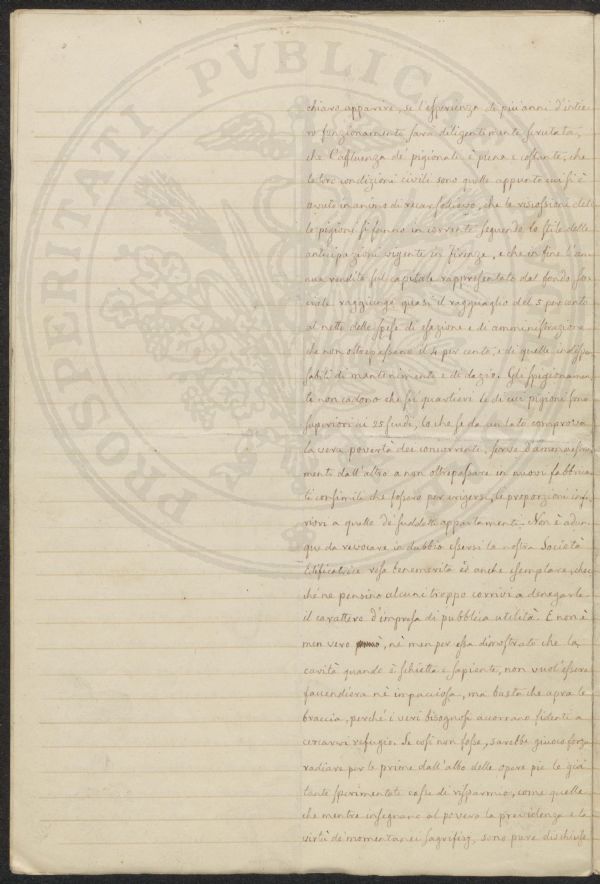 PROSPERITATI PVBLICAE
chiaro apparire, se l'esperienza di più anni d'intie-
ro funzionamento sarà diligentemente scrutata,
che l'affluenza de' pigionali è piena e costante, che
le loro condizioni civili sono quelle appunto cui si è
avuto in animo di recar sollievo, che le riscossioni del-
le pigioni si fanno in corrente seguendo lo stile delle
anticipazioni vigente in Firenze, e che in fine l'an-
nua rendita sul capitale rappresentato dal fondo so-
ciale raggiunge quasi il ragguaglio del 5 per cento
al netto delle spese di esazione e di amministrazione
che non oltrepassano il 4 per cento, e di quelle indispen-
sabili di mantenimento e di dazio. Gli spigionamen-
ti non cadono che su quartieri le di cui pigioni sono
superiori ai 25 scudi, lo che se da un lato comprova
la vera povertà dei concorrenti, serve d'ammaestra-
mento dall'altro a non oltrepassare in nuovi fabbrica-
ti consimili che fossero per erigersi, le proporzioni infe-
riori a quelle de' suddetti appartamenti. Non è adun-
que da revocare in dubbio essersi la nostra Società
Edificatrice resa benemerita ed anche esemplare, chec-
ché ne pensino alcuni troppo corrivi a denegarle
il carattere d'impresa di pubblica utilità. E non è
men vero, nè men per essa dimostrato che la
carità quando è schietta e sapiente, non vuol'essere
faccendiera nè impacciosa, ma basta che apra le
braccia, perché i veri bisognosi accorrano fidenti a
cercarvi refugio. Se così non fosse, sarebbe giuoco forza
radiare per le prime dall'albo delle opere pie le già
tanto sperimentate casse di risparmio, come quelle
che mentre insegnano al povero la previdenza e la
virtù de' momentanei sagrifizj, sono pure dischiuse